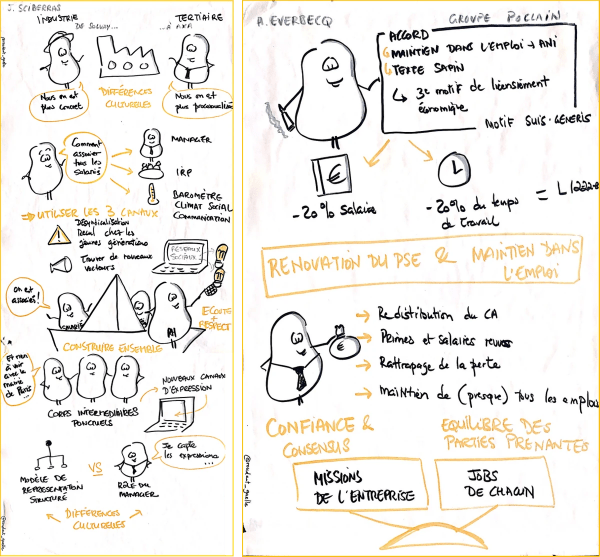 J. SCIBERRAS
INDUSTRIE
DE SOLVAY...
TERTIAIRE
...À AXA
Nous on est
plus concret
DIFFÉRENCES
CULTURELLES
Nous on est
Comment
associer
tous les
salariés
MANAGER
IRP
BAROMÈTRE
CLIMAT SOCIAL
COMMUNICATION
⇒ UTILISER LES 3 CANAUX
Désyndicalisation
Recul chez les
jeunes générations
Trouver de nouveaux
vecteurs
RÉSEAUX
SOCIAUX
On est
associés!
SALARIÉ
ECOUTE
+
RESPECT
CONSTRUIRE ENSEMBLE
Et rien
à voir
avec la
mairie
de Paris
...
NOUVEAUX CANAUX
D'EXPRESSION
CORPS INTERMÉDIAIRES
PONCTUELS
MODÈLE DE
REPRÉSENTATION
STRUCTURÉ
VS
Je capte
les expressions
...
RÔLE DU
MANAGER
DIFFÉRENCES
CULTURELLES
A. EVERBECQ
GROUPE POCLAIN
ACCORD
MAINTIEN DANS L'EMPLOI → ANI
TEXTE SAPIN
↳ 3e motif de licenciement
économique
MOTIF SUIS-GENERIS
€
-20% Salaire
-20% du temps
de travail
= L1222-8
RENOVATION DU PSE & MAINTIEN DANS
L'EMPLOI
→ Redistribution du CA
→ Primes et salaires revus
€
→ Rattrapage de la perte
→ maintien de (presque) tous les emplois
CONFIANCE &
CONSENSUS
EQUILIBRE DES
PARTIES PRENANTES
MISSIONS
DE L'ENTREPRISE
JOBS
DE CHACUN